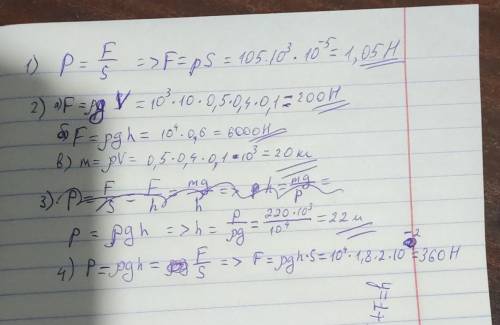 1) P = F/S => F = pS = 105·10³ · 10⁻⁵ = 1,05 Н
2) а) F = ρgV = 10³·10·0,5·0,4·0,1 = 200Н
б) F = ρgh = 10⁴·0,6 = 6000Н
в) m = ρV = 0,5·0,4·0,1·10³ = 20 кг
3) P = F/S = F/h = mg/h => ph = mg/P =
p = ρgh => h = p/ρg = 220·10³/10⁴ = 22 м
4) P = ρgh = F/S => F = ρgh·S = 10⁴·1,8·2·10⁻² = 360 Н